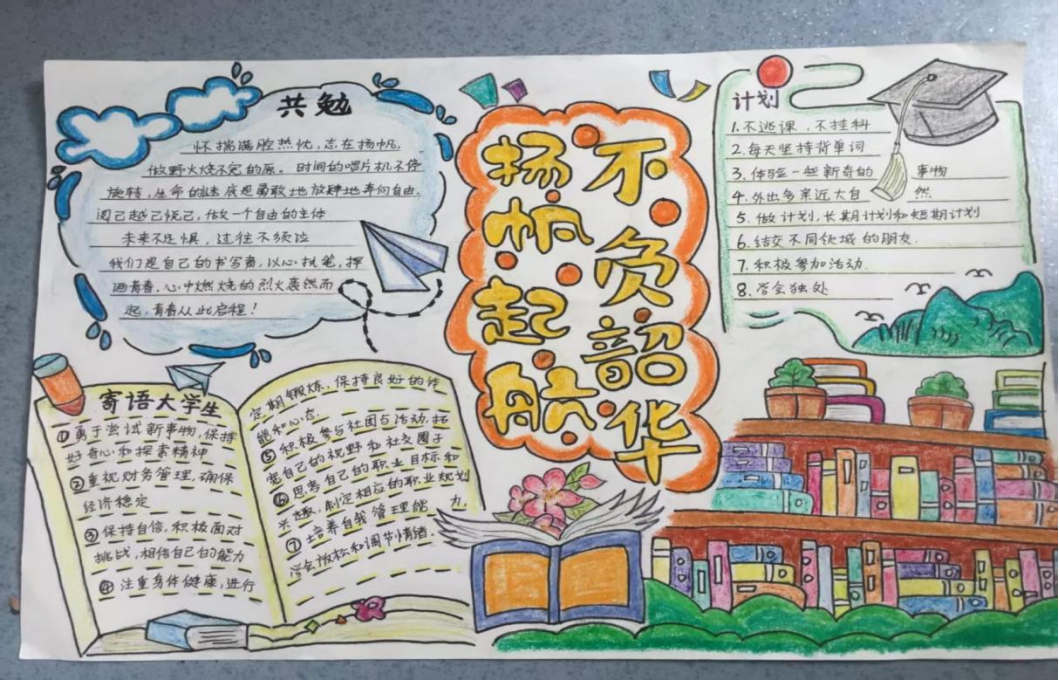 共勉
怀揣满腔热忱,志在扬帆,
做野火烧不完的原。时间的唱片机不停
旋转,生命的 底是勇敢地放肆地奔向自由
周己越己悦己,做一个自由的主体
未来不足惧,过往不须泣
我们是自己的书写者,以心执笔,挥
洒青春,心中燃烧的烈火轰然而
起,青春从此启程!
扬帆起航
不负韶华
计划
1.不逃课,不挂科
2.每天坚持背单词
3.体验一些新奇的 事物
4.外出多亲近大自 然
5.做计划,长期计划和短期计划
6.结交不同领域的朋友.
7.积极参加活动.
8.学会独处
寄语大学生
①勇于尝试新事物,保持
好奇心和探索精神
②重视财务管理,确保
经济稳定
③保持自信,积极面对
挑战,相信自己的能力
④注重身体健康,进行
定期锻炼,保持良好的体
能和心态
⑤积极参与社团与活动,拓
宽自己的视野和社交圈子
⑥思考自己的职业目标和
兴趣,制定相应的职业规划
⑦培养自我管理能力,
学会放松和调节情绪.